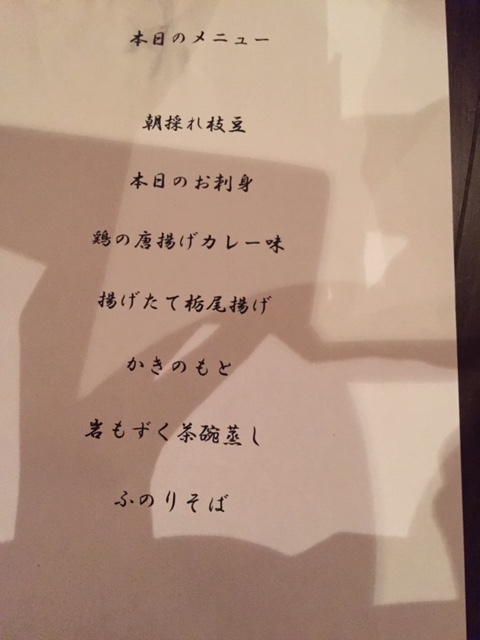 本日のメニュー
朝採れ枝豆
本日のお刺身
鶏の唐揚げカレー味
揚げたて栃尾揚げ
かきのもと
岩もずく茶碗蒸し
ふのりそば